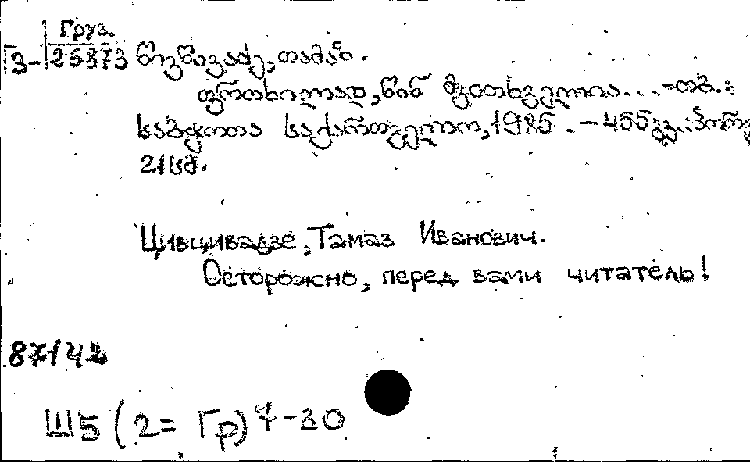 Груз.
Г3-25373 წივწივაძე, თამაზ.
ფრთხილად, წინ მკითხველია... -თბ.:
საბჭოთა საქართველო, 1985. -455გვ.: პორტ
21სმ.
Цивцивадзе, Тамаз Иванович.
Осторожно, перед вами читатель!
87142
Ш5(2=Гр)7-30